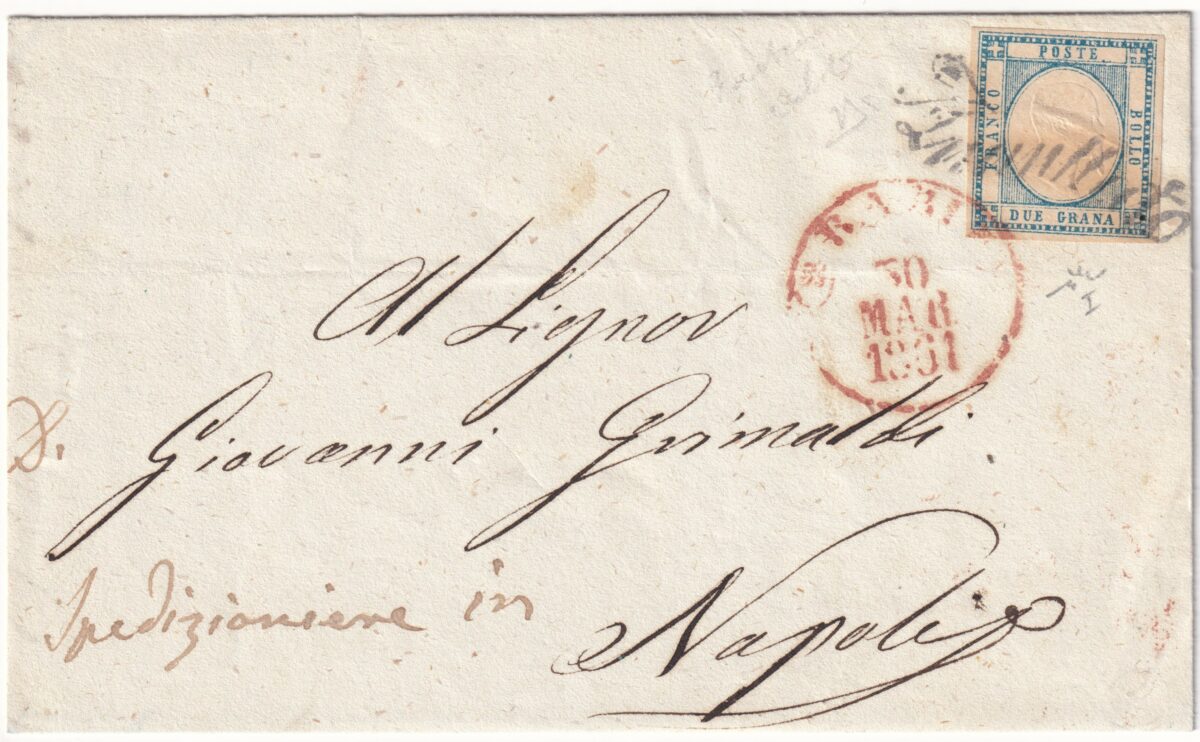 POSTE
FRANCO
BOLLO
DUE GRANA
BARI
30
MAR
1861
Al Signor
D. Giovanni Grimaldi
Spedizioniere in Napoli